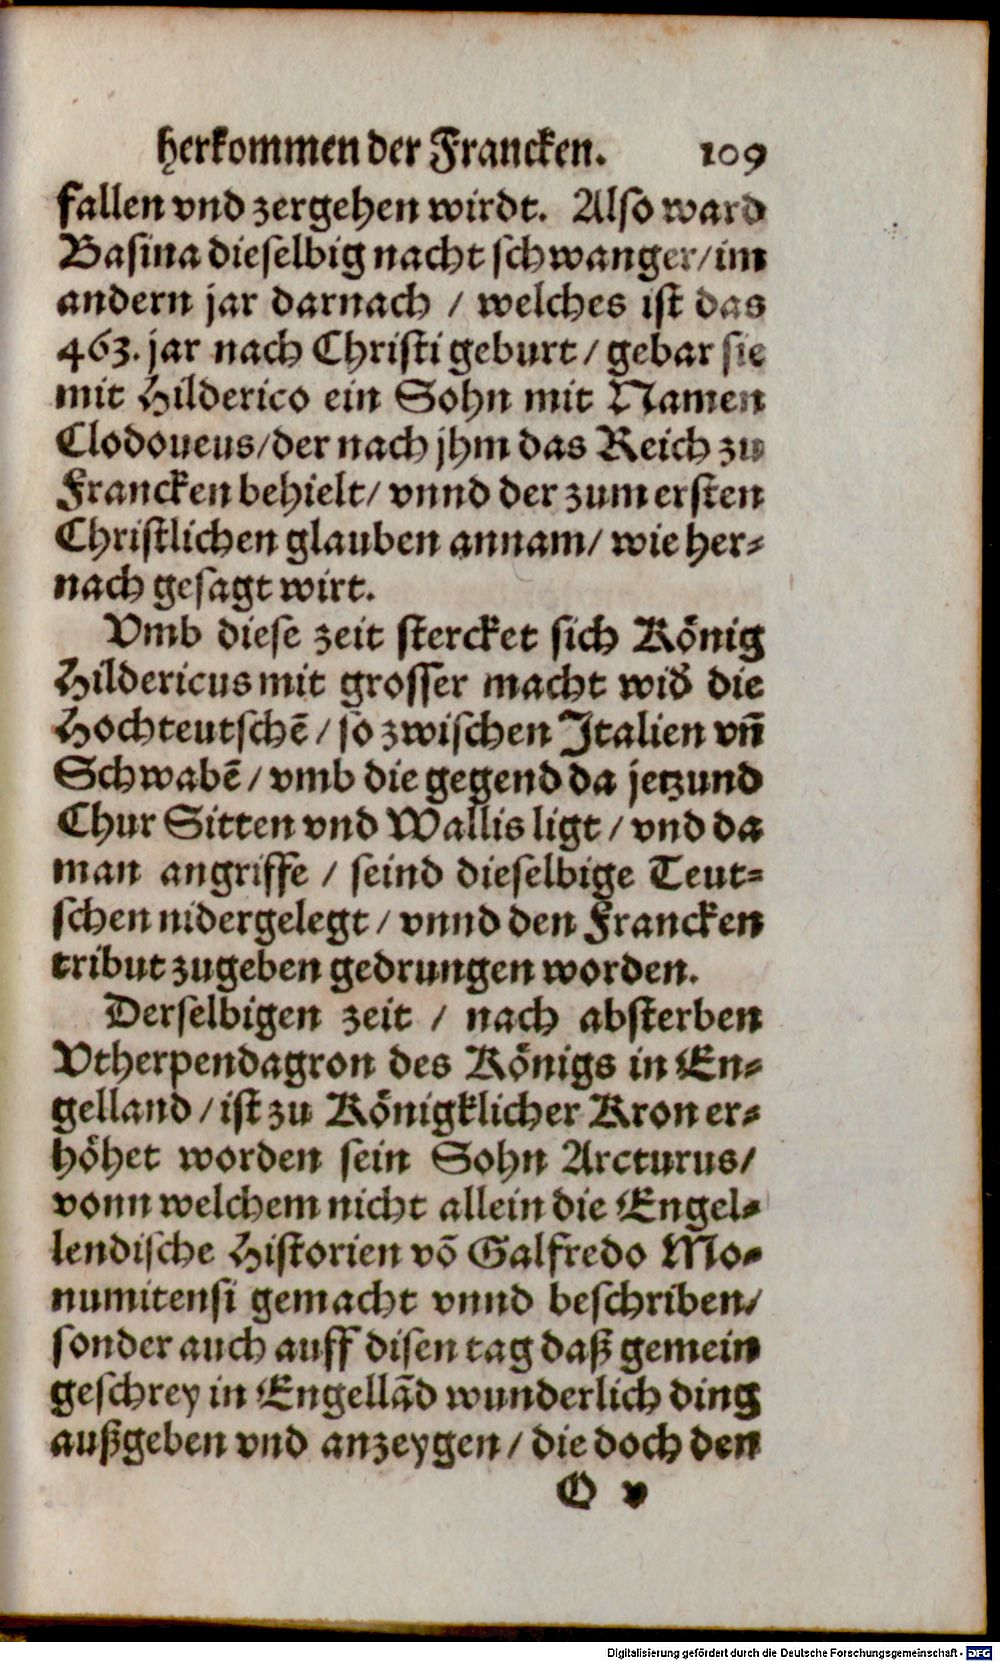 herkommen der Francken. 109
fallen vnd zergehen wirdt. Also ward
Basina dieselbig nacht schwanger/im
andern jar darnach / welches ist das
463. jar nach Christi geburt / gebar sie
mit Hilderico ein Sohn mit Namen
Clodoueus/der nach jhm das Reich zu
Francken behielt/ vnnd der zum ersten
Christlichen glauben annam/ wie her-
nach gesagt wirt.
Vmb diese zeit stercket sich König
Hildericus mit grosser macht wid̄ die
Hochteutschē / so zwischen Italien vñ
Schwabē / vmb die gegend da jetzund
Chur Sitten vnd Wallis ligt / vnd da
man angriffe / seind dieselbige Teut-
schen nidergelegt / vnnd den Francken
tribut zugeben gedrungen worden.
Derselbigen zeit / nach absterben
Vtherpendagron des Königs in En-
gelland / ist zu Königklicher Kron er-
höhet worden sein Sohn Arcturus/
vonn welchem nicht allein die Engel-
lendische Historien vō Galfredo Mo-
numitensi gemacht vnnd beschriben/
sonder auch auff disen tag daß gemein
geschrey in Engellād wunderlich ding
außgeben vnd anzeygen / die doch den
O v
Digitalisierung gefördert durch die Deutsche Forschungsgemeinschaft - DFG